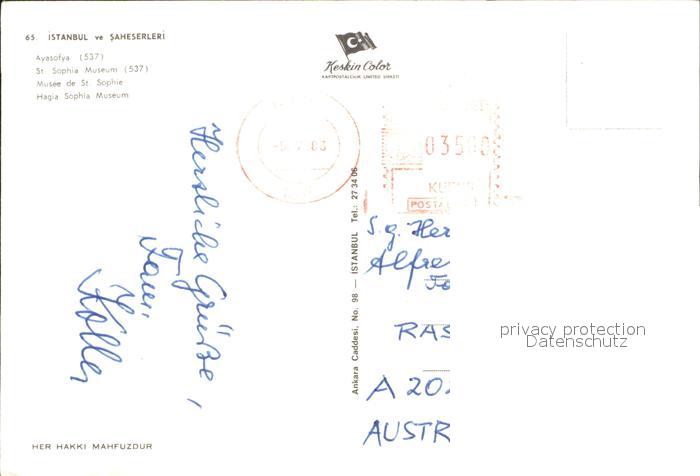 65. İSTANBUL ve ŞAHESERLERİ
Ayasofya (537)
St. Sophia Museum (537)
Musée de St. Sophie
Hagia Sophia Museum
Keskin Color
KARTPOSTALCILIK LIMITED ŞİRKETİ
83
0350
KURUŞ
POSTA
Herzliche Grüße,
Fam.
Koller
Ankara Caddesi, No. 98 — İSTANBUL Tel.: 27 34 06
S.g. Her
Alfre
RAS
A 202
AUSTR
privacy protection
Datenschutz
HER HAKKI MAHFUZDUR